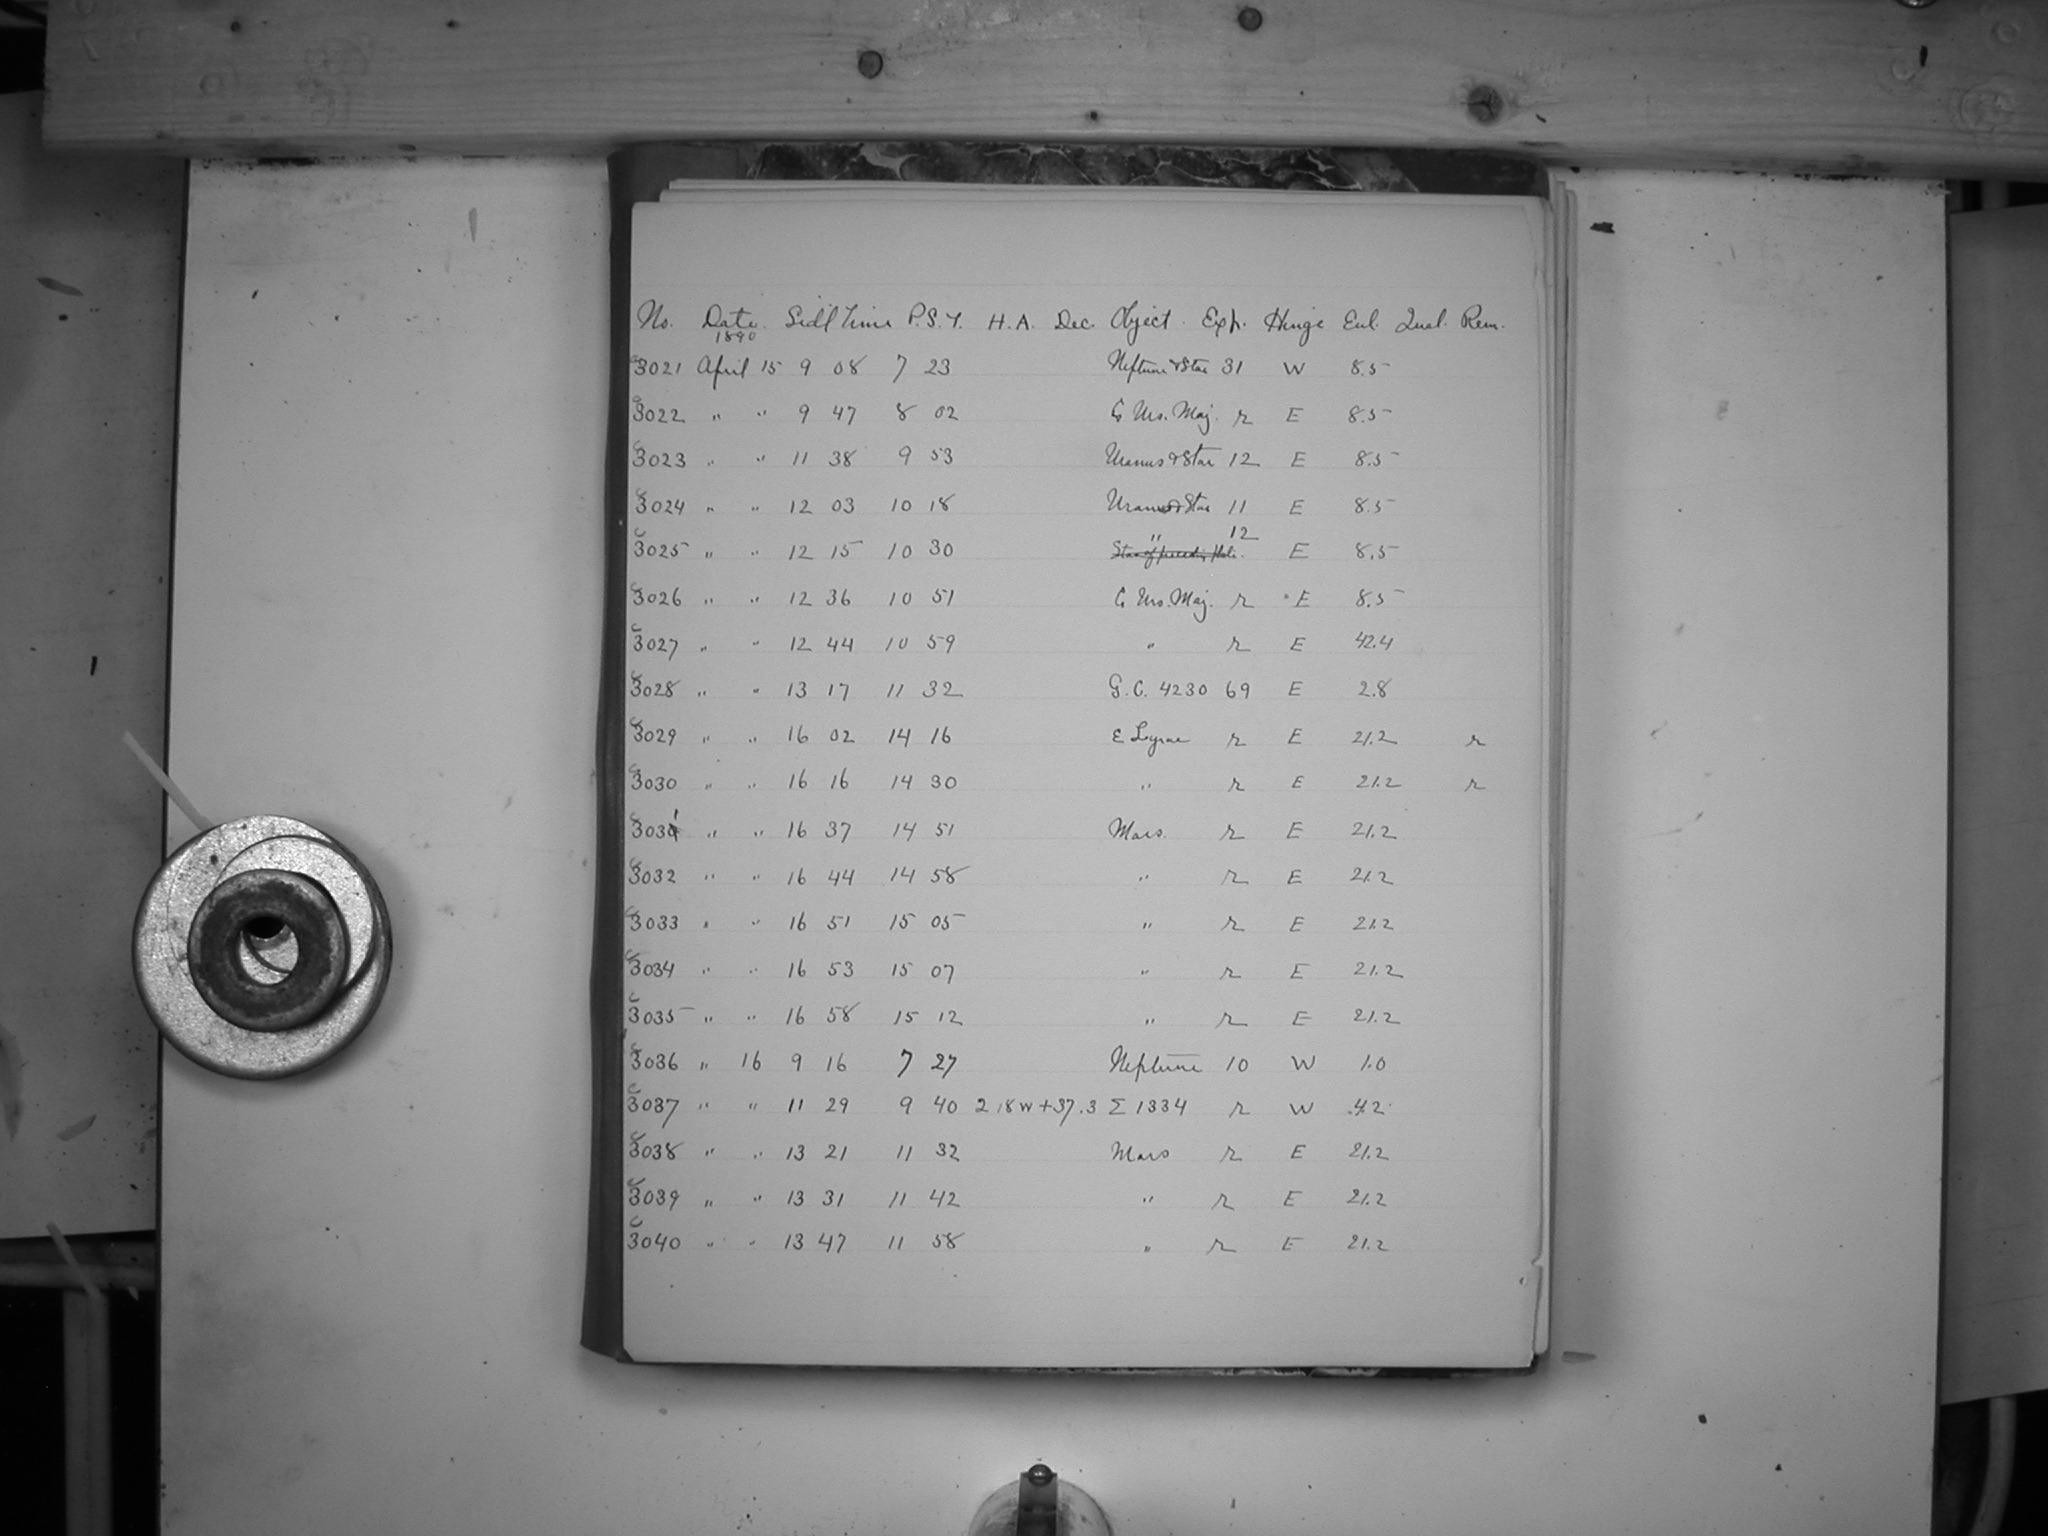 No. Date. Sidl Time P.S.T. H.A. Dec. Object. Exp. Hinge Enl. Qual. Rem.
1890
C3021 April 15 9 08 7 23 Neptune & Star 31 W 8.5
C3022 " " 9 47 8 02 ζ Urs. Maj. r E 8.5
C3023 " " 11 38 9 53 Uranus & Star 12 E 8.5
C3024 " " 12 03 10 18 Uranus & Star 11 E 8.5
C3025 " " 12 15 10 30 " 12 E 8.5
C3026 " " 12 36 10 51 ζ Urs. Maj. r E 8.5
C3027 " " 12 44 10 59 " r E 42.4
C3028 " " 13 17 11 32 G.C. 4230 69 E 2.8
C3029 " " 16 02 14 16 ε Lyrae r E 21.2 r
C3030 " " 16 16 14 30 " r E 21.2 r
C3031 " " 16 37 14 51 Mars. r E 21.2
C3032 " " 16 44 14 58 " r E 21.2
C3033 " " 16 51 15 05 " r E 21.2
C3034 " " 16 53 15 07 " r E 21.2
C3035 " " 16 58 15 12 " r E 21.2
C3036 " 16 9 16 7 27 Neptune 10 W 1.0
C3037 " " 11 29 9 40 2 18 W +37.3 Σ 1334 r W 42
C3038 " " 13 21 11 32 Mars r E 21.2
C3039 " " 13 31 11 42 " r E 21.2
C3040 " " 13 47 11 58 " r E 21.2